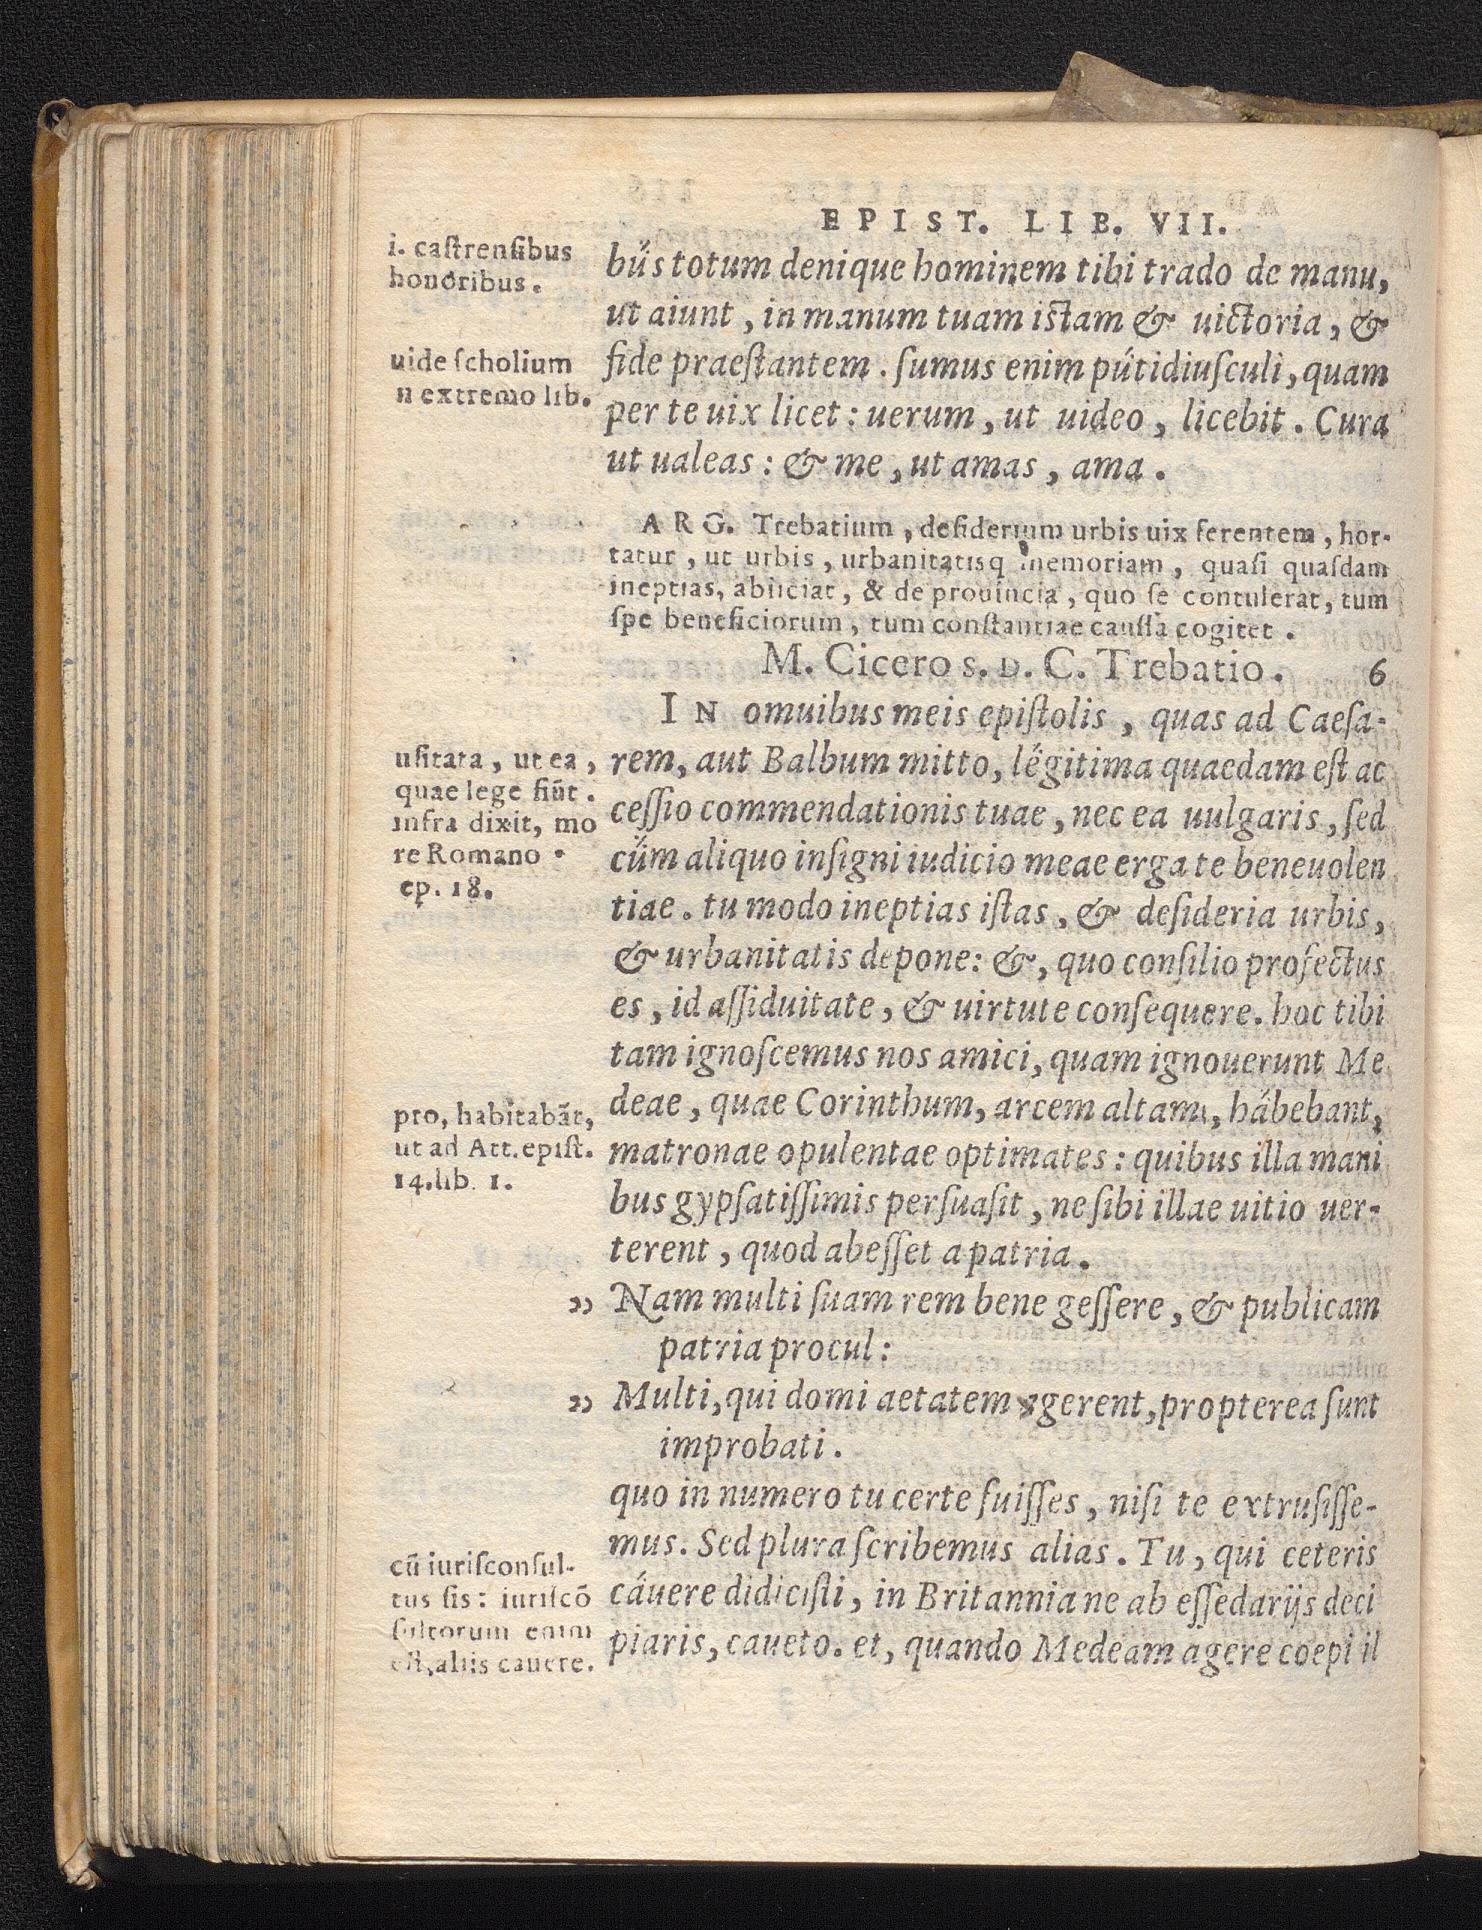 EPIST. LIB. VII.
i. castrensibus
honoribus.
bus totum denique hominem tibi trado de manu,
ut aiunt, in manum tuam istam & uictoria, &
uide scholium
fide praestantem. sumus enim putidiusculi, quam
n extremo lib.
per te uix licet: uerum, ut uideo, licebit. Cura
ut ualeas: & me, ut amas, ama.
ARG. Trebatium, desiderium urbis uix ferentem, hor-
tatur, ut urbis, urbanitatisq memoriam, quasi quasdam
ineptias, abiiciat, & de prouincia, quo se contulerat, tum
spe beneficiorum, tum constantiae caussa cogitet.
M. Cicero S. D. C. Trebatio. 6
IN omuibus meis epistolis, quas ad Caesa-
usitata, ut ea,
quae lege fiūt.
infra dixit, mo
re Romano
ep. 18.
rem, aut Balbum mitto, legitima quaedam est ac
cessio commendationis tuae, nec ea uulgaris, sed
cum aliquo insigni iudicio meae erga te beneuolen
tiae. tu modo ineptias istas, & desideria urbis,
& urbanitatis depone: &, quo consilio profectus
es, id assiduitate, & uirtute consequere. hoc tibi
tam ignoscemus nos amici, quam ignouerunt Me
pro, habitabāt,
ut ad Att. epist.
14. lib. 1.
deae, quae Corinthum, arcem altam, habebant,
matronae opulentae optimates: quibus illa mani
bus gypsatissimis persuasit, ne sibi illae uitio uer-
terent, quod abesset a patria.
,, Nam multi suam rem bene gessere, & publicam
patria procul:
,, Multi, qui domi aetatem agerent, propterea sunt
improbati.
quo in numero tu certe fuisses, nisi te extrusisse-
mus. Sed plura scribemus alias. Tu, qui ceteris
cū iurisconsul-
tus sis: iuriscō
sultorum enim
est, aliis cauere.
cáuere didicisti, in Britannia ne ab essedarijs deci
piaris, caueto. et, quando Medeam agere coepi il